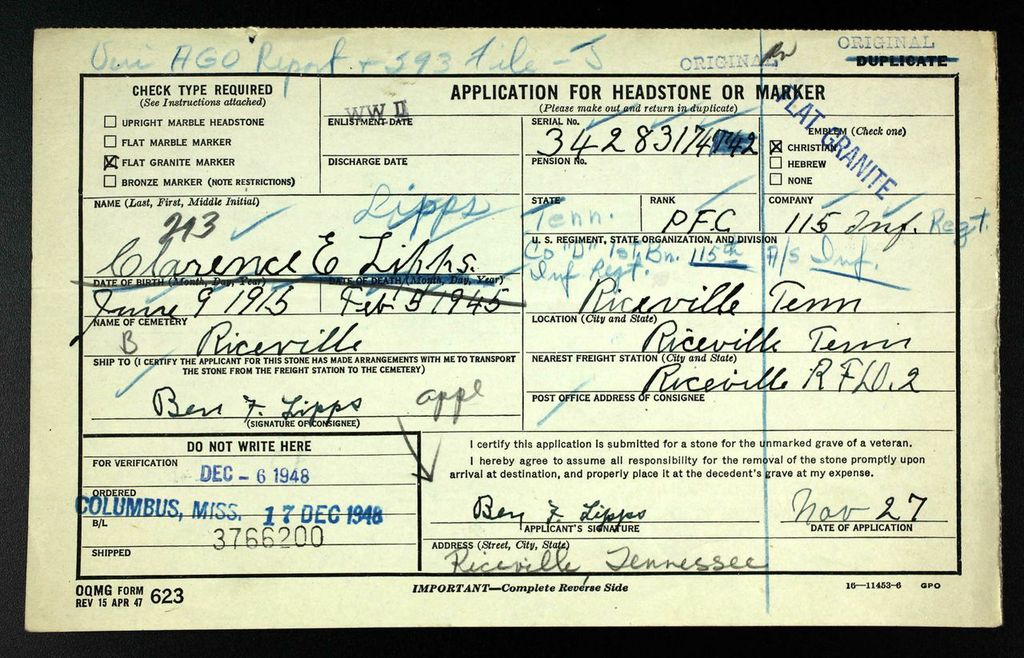 AGO Report + 293 File - J
ORIGINAL
ORIGINAL
DUPLICATE
CHECK TYPE REQUIRED
(See Instructions attached)
UPRIGHT MARBLE HEADSTONE
FLAT MARBLE MARKER
FLAT GRANITE MARKER
BRONZE MARKER (NOTE RESTRICTIONS)
APPLICATION FOR HEADSTONE OR MARKER
(Please make out and return in duplicate)
WW II
ENLISTMENT DATE
DISCHARGE DATE
SERIAL No.
34283174
PENSION No.
EMBLEM (Check one)
CHRISTIAN
HEBREW
NONE
FLAT GRANITE
NAME (Last, First, Middle Initial)
213
Lipps
Clarence E Lipps.
STATE
Tenn.
RANK
PFC
COMPANY
115 Inf. Regt.
U. S. REGIMENT, STATE ORGANIZATION, AND DIVISION
Co "D" 1st Bn. 115th Inf.
Inf Regt.
DATE OF BIRTH (Month, Day, Year)
DATE OF DEATH (Month, Day, Year)
June 9 1915
Feb 5 1945
Riceville Tenn
NAME OF CEMETERY
LOCATION (City and State)
B Riceville
Riceville Tenn
SHIP TO (I CERTIFY THE APPLICANT FOR THIS STONE HAS MADE ARRANGEMENTS WITH ME TO TRANSPORT
THE STONE FROM THE FREIGHT STATION TO THE CEMETERY)
NEAREST FREIGHT STATION (City and State)
Riceville RFD.2
POST OFFICE ADDRESS OF CONSIGNEE
Ben F. Lipps
(SIGNATURE OF CONSIGNEE)
appl
DO NOT WRITE HERE
FOR VERIFICATION
DEC - 6 1948
ORDERED
COLUMBUS, MISS. 17 DEC 1948
B/L
3766200
SHIPPED
I certify this application is submitted for a stone for the unmarked grave of a veteran.
I hereby agree to assume all responsibility for the removal of the stone promptly upon
arrival at destination, and properly place it at the decedent's grave at my expense.
Ben F. Lipps
Nov 27
APPLICANT'S SIGNATURE
DATE OF APPLICATION
ADDRESS (Street, City, State)
Riceville, Tennessee
OQMG FORM
REV 15 APR 47 623
IMPORTANT—Complete Reverse Side
16—11453-6 GPO